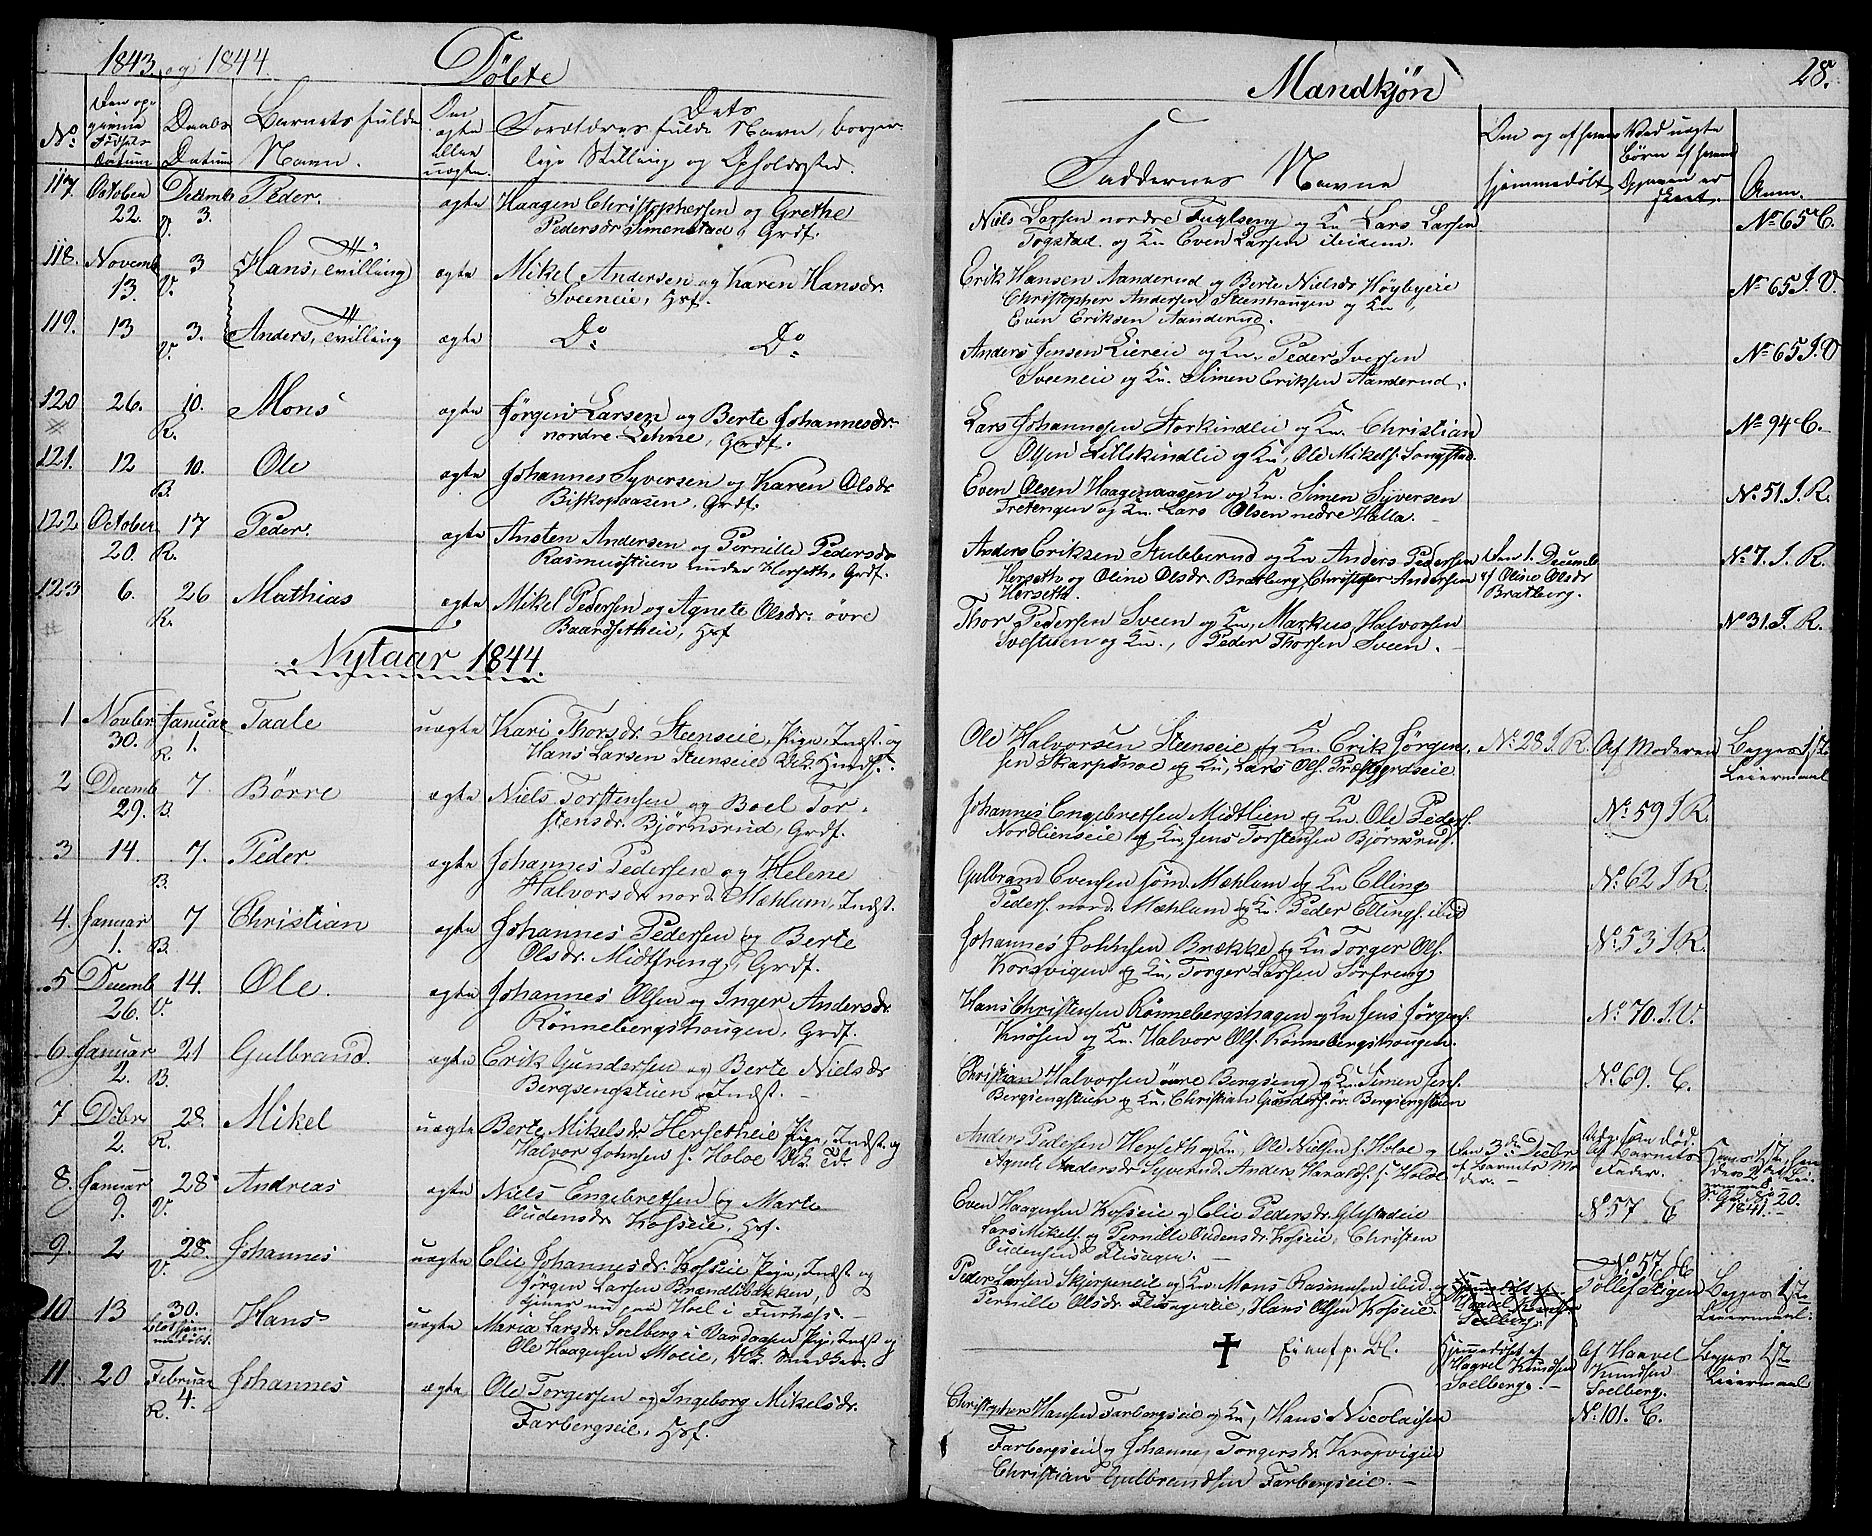 1843 og 1844
Döbte
Den op-
givne
Födsels
Datum
No.
Daabs
Datum
Barnets fulde
Navn.
Om
ægte
Eller
uægte.
Dets
Forældres fulde Navn, borger-
lige Stilling og Opholdssted.
117. October 22. Decemb 3. V. Peder. ægte Haagen Christophersen og Grethe
Pedersdr Simenstad, Grdf.
118. Novemb 13. 3 V. Hans, tvilling ægte Mikel Andersen og Karen Hansdr.
Sveeneie, Hsf.
119. 13 3. V. Anders, tvilling ægte Do Do
120 26. 10. R. Mons ægte Jörgen Larsen og Berte Johannesdr.
nordre Lehne, Grdf.
121. 12 10. B. Ole ægte Johannes Syversen og Karen Olsdr
Biskopaasen, Grdf.
122 October 20. 17 R. Peder. ægte Ansten Andersen og Pernille Pedersdr
Rasmusstuen under Herseth, Grdf.
123 6. 26 R. Mathias ægte Mikel Pedersen og Agnete Olsdr. övre
Baardsetheie, Hsf
Nytaar 1844.
1 Novbr. 30. Januar 1. R Taale uægte Kari Thorsdr. Steenseie, Pige, Indst. og
Hans Larsen Steenseie
2 Decemb 29. 7. B. Börre ægte Niels Torstensen og Boel Tor-
stensdr. Björnsrud, Grdf.
3 14 7. B. Peder ægte Johannes Pedersen og Helene
Halvorsdr. nord. Mæhlum, Indst.
4. Januar 1. 7 B. Christian ægte Johannes Pedersen og Berte
Olsdr. Midtfreng, Grdf.
5 Decemb 26. 14. V. Ole. ægte Johannes Olsen og Inger Andersdr.
Rönnebergshaugen, Grdf.
6. Januar 2. 21 B. Gulbrand. ægte Erik Gundersen og Berte Nielsdr
Bergsengstuen, Indst.
7 Dcbr 2. 28. R. Mikel uægte Berte Mikelsdr. Hersetheie Pige, Indst. og
Halvor Johnsen f. Holoe
8. Januar 9. 28 V. Andreas ægte Niels Engebretsen og Marte
Oudensdr. Kosseie, Hsf.
9. 2 28. V. Johannes uægte Elie Johannesdr. Kosseie Pige, Indst og
Jörgen Larsen Brændlibakken,
tjenende Hoel i Furnæs.
10. 13 30. blot hjem-
medöbt. Hans uægte Maria Larsdr. Soelberg i Vardaasen Pige, Indst og
Ole Haagensen Moeie, Snedker.
11. 20 Februar 4. R. Johannes ægte Ole Torgersen og Ingeborg Mikelsdr.
Farbergseie, Hsf.
Mandkjön
28.
Faddernes Navne
Om og af hvem
hjemmedöbt
Ved uægte
Börn af hvem
Opgaven er
skeet.
Anm.
Niels Larsen nordre Fuglseng og Km Lars Larsen
Togstad og Km Even Larsen ibidem. No 65 C.
Erik Hansen Aanderud og Berte Nielsdr Höybyeie
Christopher Andersen Steenhaugen og Km
Even Eriksen Aanderud. No 65 I. V.
Anders Jensen Liereie og Km. Peder Iversen
Sveeneie og Km. Simen Eriksen Aanderud. No 65 I. V
Lars Johannesen Storkindlie og Km. Christian
Olsen Lillekindlie og Km, Ole Mikels. Longstad. No 94 C.
Even Olsen Haagenaasen og Km. Simen Syversen
Tretengen og Km. Lars Olsen nedre Halla. No. 51. I. R.
Anders Eriksen Stubberud og Km Anders Pedersen
Herseth og Oline Olsdr. Bratberg, Christopher Andersen
Herseth. Den 1. Decemb
af Oline Olsdr
Bratberg. No 7. I. R.
Thor Pedersen Sveen og Km, Markus Halvorsen
og Km., Peder Thorsen Sveen. No 31. I. R.
Ole Halvorsen Steenseie og Km. Erik Jörgen-
sen Skarpsnoe og Km, Lars Ols. Præstgrdseie No. 28 I R. Af Moderen Begges 1ste
Leiermaal
Johannes Engebretsen Midtlien og Km. Ole Peders.
Nordlienseie og Km, Jens Torstensen Björnsrud. No. 59 I R.
Gulbrand Evensen söm. Mæhlum og Km Elling
Peders. nord. Mæhlum og Km. Peder Ellings. ibid No. 62 I R.
Johannes Johnsen Brække og Km Torger Ols.
Korsvigen og Km, Torger Larsen Sörfreng No. 53 I R.
Hans Christensen Rönnebergshagen og Km Jens Jörgens.
Knösen og Km. Halvor Ols. Rönnebergshougen. No. 70. I. V.
Christian Halvorsen övre Bergseng og Km. Simen Jens.
Bergsengstuen og Km, Christian Gunders. öv. Bergsengstuen No. 69. C.
Anders Pedersen Herseth og Km, Ole Nielsen f. Holoe og
Agnete Andersdr Syverud. Anders Haralds. f. Holoe Den 3 Decbr
af Barnets Mo-
der. Af Barnets
Fader.
1841. No. 20.
Even Haagensen Kosseie og Elie Pedersdr. Glestadeie
Lars Mikels. og Pernille Oudensdr. Kosseie, Christen
Oudensen Flisagen. No 57 C
Peder Larsen Skjerpeneie og Km. Mons Rasmusen ibid. og
Pernille Olsdr. Flisageneie, Hans Olsen Kosseie. No. 57. H
Tollef Stigen Begges 1ste
Leiermaal.
✝ Hjemmedöbt af
Haavel Knudsen
Soelberg. Af Haavel
Knudsen
Soelberg. Begges 1ste
Leiermaal
Christopher Hansen Farbergseie og Km, Hans Nicolaisen
Farbergseie og Johanne Torgersdr. Korsvigen
Christian Gulbrandsen Farbergseie. No. 101. C.